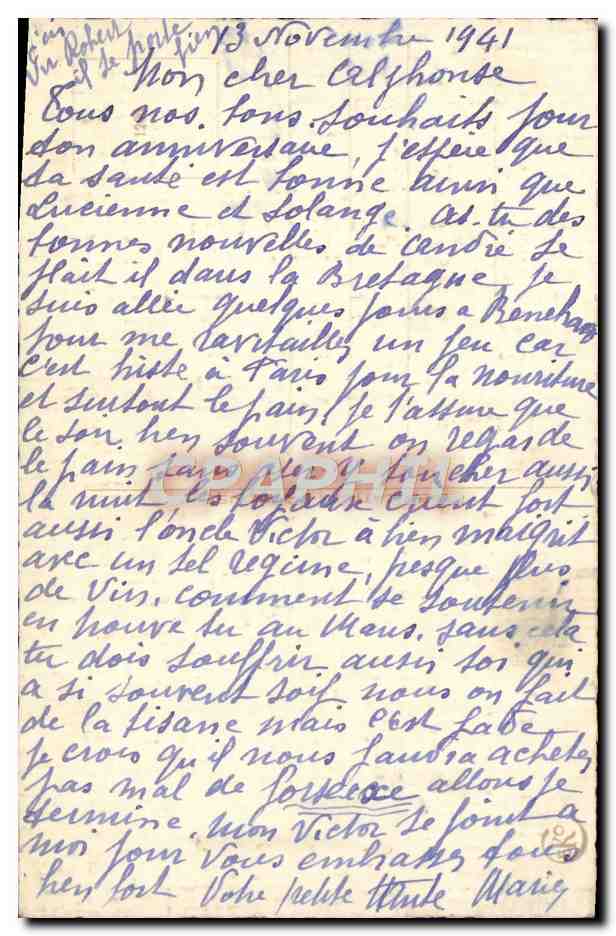 vu Robert
il se porte
bien
13 Novembre 1941
Mon cher Alphonse
Tous nos bons souhaits pour
ton anniversaire, j'espère que
ta santé est bonne ainsi que
Lucienne et Solange. As-tu des
bonnes nouvelles de André se
plait il dans la Bretagne, je
suis allée quelques jours a
pour me ravitailler un peu car
c'est triste à Paris pour la nouriture
et surtout le pain, je t'assure que
le soir bien souvent on regarde
le pain sans y toucher aussi
la nuit les boyaux crient fort
aussi l'oncle Victor à bien maigrit
avec un tel regime, presque plus
de vin, comment se soutenir
en trouve tu au Mans, sans cela
tu dois souffrir aussi toi qui
a si souvent soif nous on fait
de la tisane mais c'est fade
je crois qu'il nous faudra acheter
pas mal de allons je
termine, mon Victor se joint a
moi pour vous embrasser tous
bien fort Votre petite tante Marie
CPARAMA